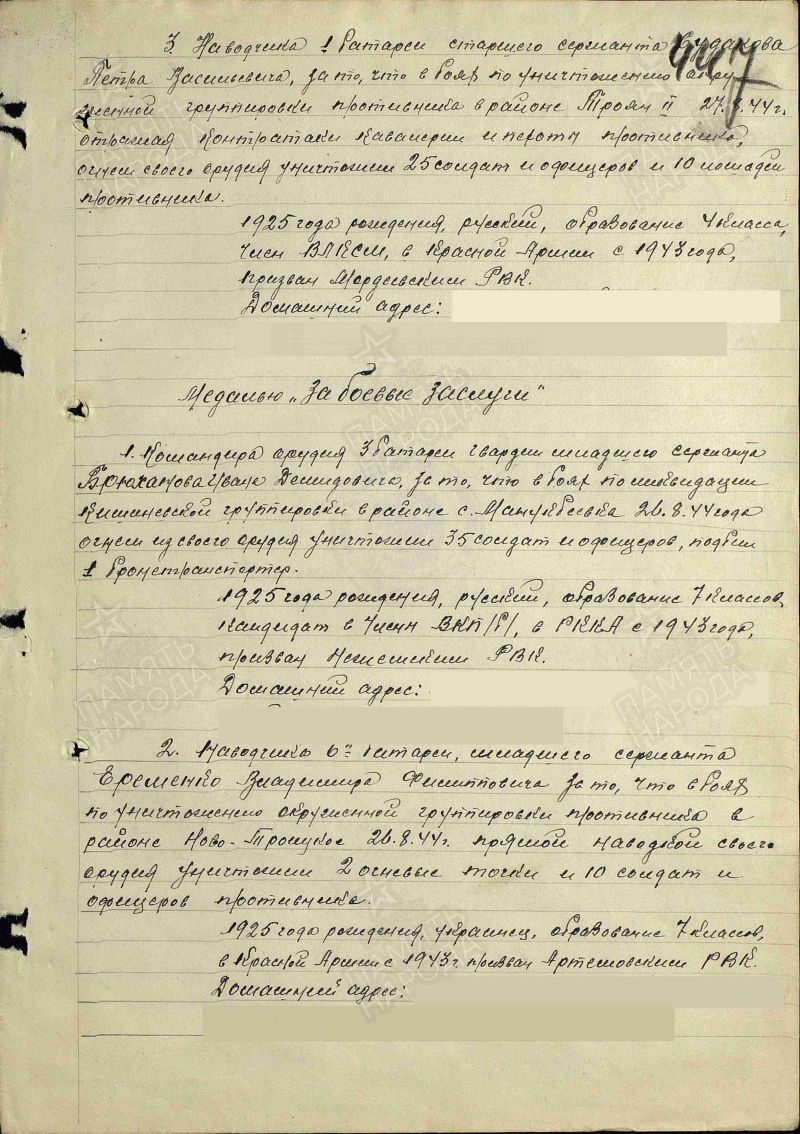 3. Наводчика 1 батареи старшего сержанта Будакова
447
Петра Васильевича, за то, что в боях по уничтожению окру-
женной группировки противника в районе Троян II 27.8.44г.
отражая контратаки кавалерии и пехоты противника,
огнем своего орудия уничтожил 25 солдат и офицеров и 10 лошадей
противника.
1925 года рождения, русский, образование 4 класса,
член ВЛКСМ, в Красной Армии с 1943 года,
призван РВК.
Домашний адрес:
Медалью „За боевые заслуги"
1. Командира орудия 3 батареи гвардии младшего сержанта
Брюханова Ивана Демидовича, за то, что в боях по ликвидации
Кишиневской группировки в районе с. Манукбеевка 26.8.44 года
огнем из своего орудия уничтожил 35 солдат и офицеров, подбил
1 бронетранспортер.
1925 года рождения, русский, образование 7 классов,
кандидат в члены ВКП/б/, в РККА с 1943 года,
призван РВК.
Домашний адрес:
2. Наводчика 6й батареи, младшего сержанта
Еременко Владимира Филипповича за то, что в боях
по уничтожению окруженной группировки противника в
районе Ново-Троицкое 26.8.44г. прямой наводкой своего
орудия уничтожил 2 огневые точки и 10 солдат и
офицеров противника.
1925 года рождения, украинец, образование 7 классов,
в Красной Армии с 1943 г. призван Артемовским РВК.
Домашний адрес:
ПАМЯТЬ
НАРОДА